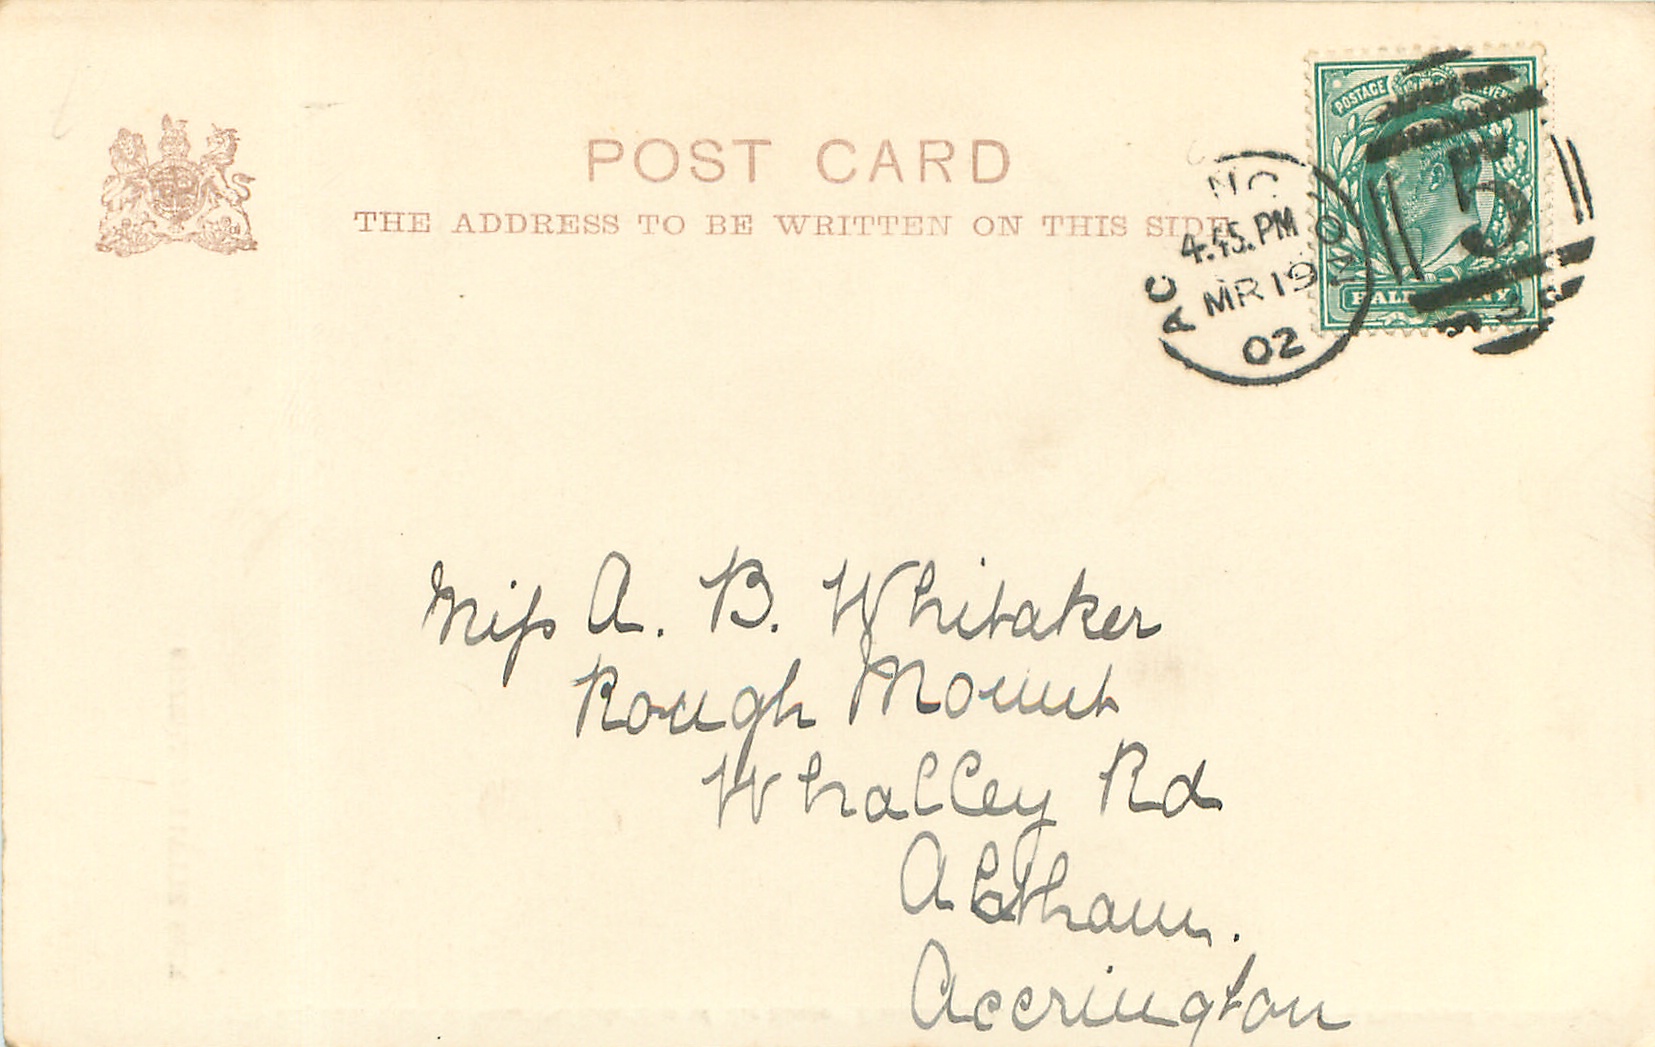 POST CARD
THE ADDRESS TO BE WRITTEN ON THIS SIDE
POSTAGE
HALFPENNY
4.45.PM
MR 19
02
Miss A. B. Whitaker
Rough Mount
Whalley Rd
Altham.
Accrington